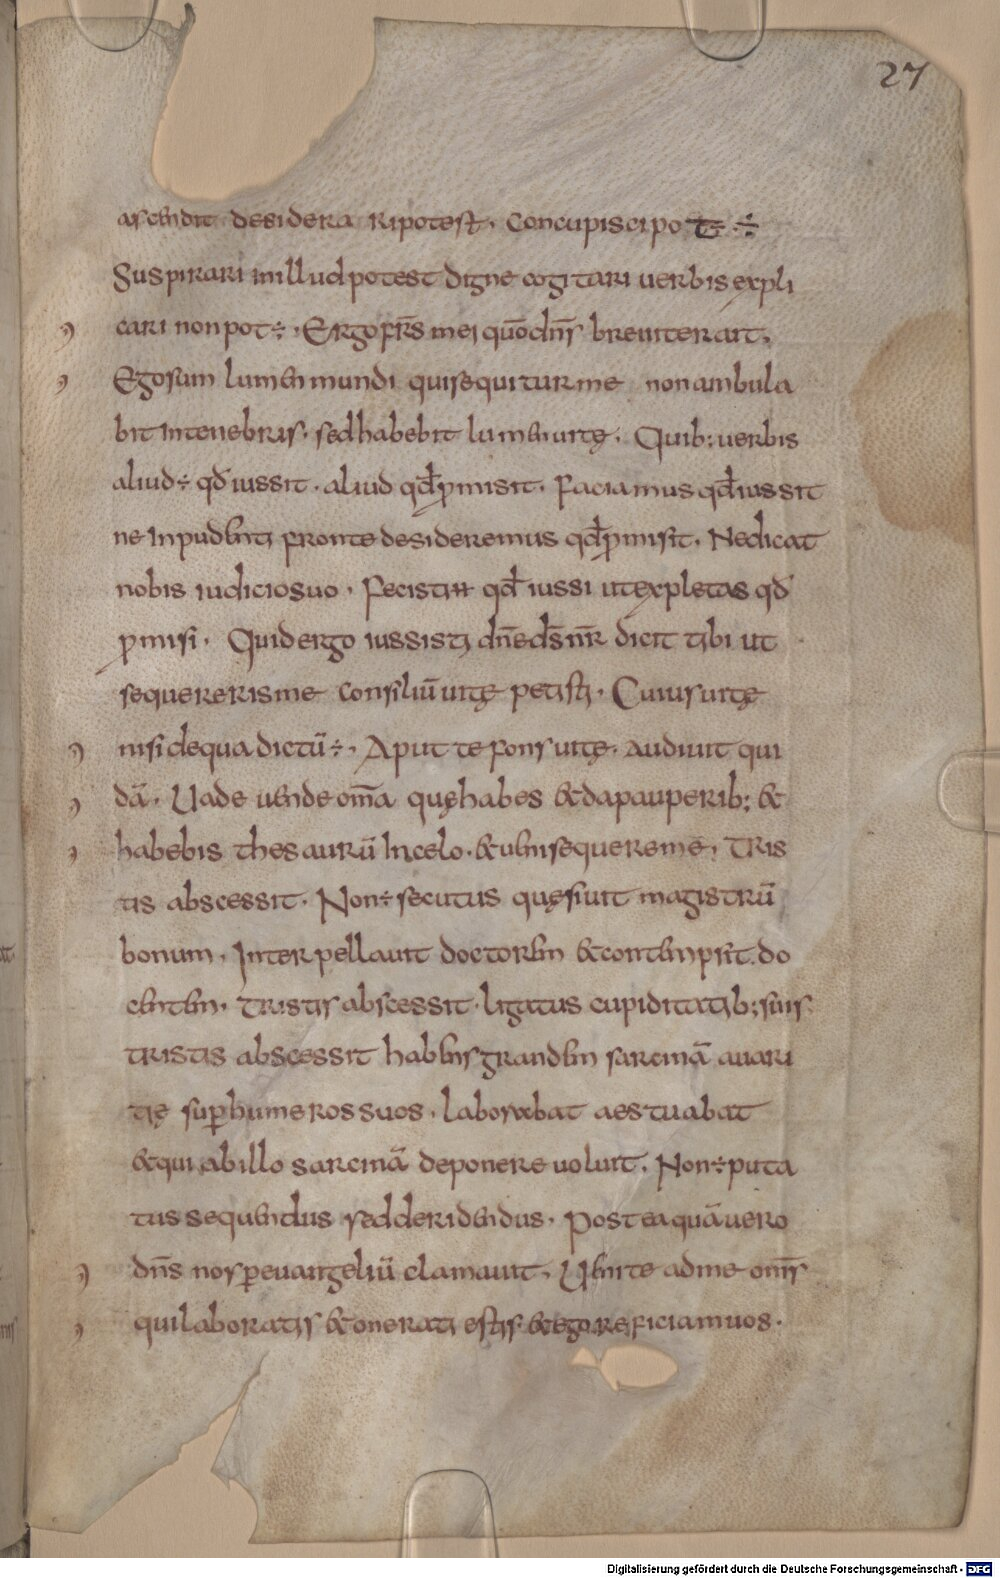 27
ascendit desidera ripotest. Concupisci pot÷
Suspirari inillud potest digne cogitari uerbis expli
cari non pot÷. Ergo frs̄ mei quōdns̄ breuiter ait,
Ego sum lumen mundi qui sequitur me non ambula
bit in tenebris. sed habebit lumen uitę. Quib; uerbis
aliud÷ qđ iussit. aliud qđ ꝓmisit. Faciamus qđ iussit
ne inpudenti fronte desideremus qđ ꝓmisit. Ne dicat
nobis iudicio suo. Fecistin qđ iussi ut expletas qđ
ꝓmisi. Quid ergo iussisti dn̄e ds̄ nr̄ dicit tibi ut
sequereris me consiliū uitę petisti. Cuius uitę
nisi de qua dictū÷. Aput te fons uitę. Audiuit qui
dā. Uade uende om̄a quę habes & da pauperib; &
habebis thesaurū in celo. & ueni sequere me. Tris
tis abscessit. Non÷ secutus quęsiuit magistrū
bonum. Interpellauit doctorem & contempsit do
centem. Tristis abscessit. ligatus cupiditatib; suis
tristis abscessit habens grandem sarcinā auari
tię suꝑ humeros suos. laborabat aestuabat
& qui ab illo sarcinā deponere uoluit. Non÷ puta
tus sequendus sed deridendus. Postea quā uero
dn̄s nos ꝑ euangeliū clamauit. Uenite ad me om̄s
qui laboratis & onerati estis & ego reficiam uos.
Digitalisierung gefördert durch die Deutsche Forschungsgemeinschaft - DFG